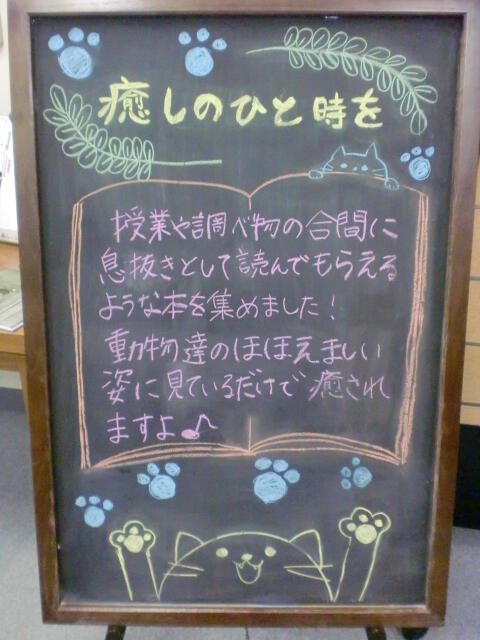 癒しのひと時を
授業や調べ物の合間に
息抜きとして読んでもらえる
ような本を集めました！
動物達のほほえましい
姿に見ているだけで癒され
ますよ♪